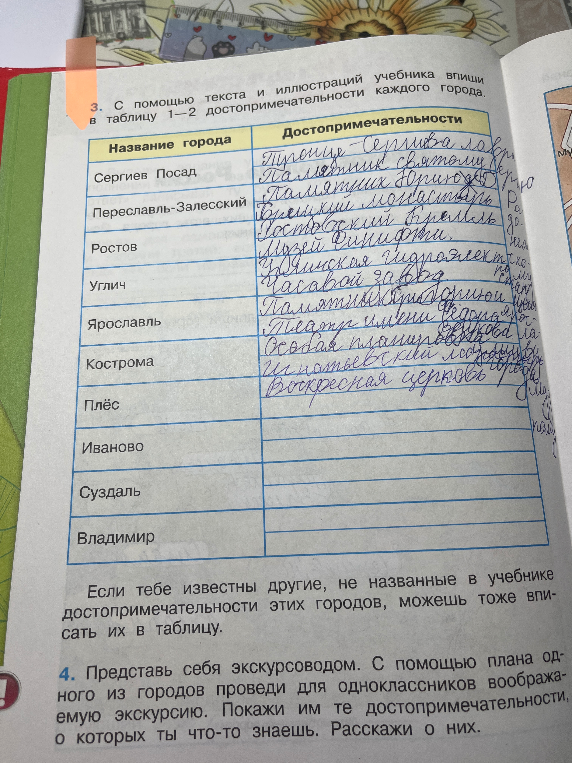 3. С помощью текста и иллюстраций учебника впиши
в таблицу 1—2 достопримечательности каждого города.
Название города
Достопримечательности
Сергиев Посад
Троице-Сергиева лавра
Памятник святому
Переславль-Залесский
Памятник Юрию До
монастырь
Ростов
Ростовский Кремль
Музей Финифти.
Углич
Угличская гидроэлект
Часовой завод
Ярославль
Памятник
Театр имени Фёдора
Волкова
Кострома
Особая планировка
города
Ипатьевский монастырь
Плёс
Воскресная церковь
Иваново
Суздаль
Владимир
Если тебе известны другие, не названные в учебнике
достопримечательности этих городов, можешь тоже впи-
сать их в таблицу.
4. Представь себя экскурсоводом. С помощью плана од-
ного из городов проведи для одноклассников вообража-
емую экскурсию. Покажи им те достопримечательности,
о которых ты что-то знаешь. Расскажи о них.